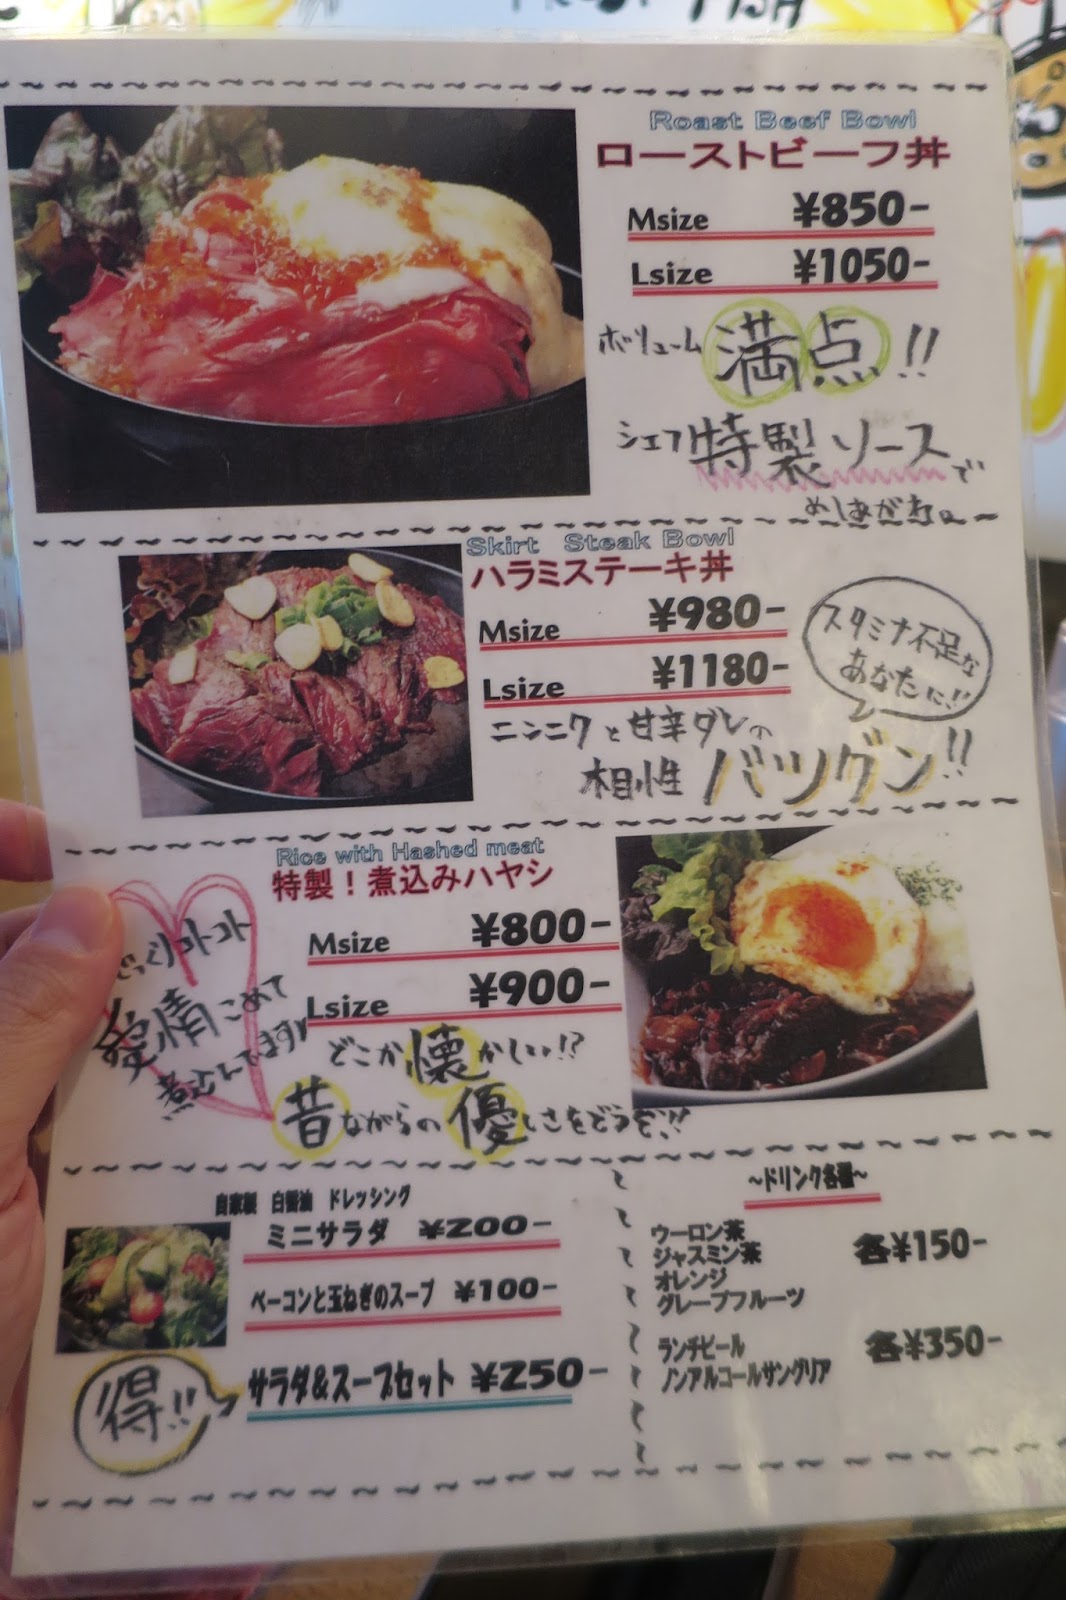 Roast Beef Bowl
ローストビーフ丼
Msize ¥850-
Lsize ¥1050-
ボリューム満点!!
シェフ特製ソースで
めしあがれ。
Skirt Steak Bowl
ハラミステーキ丼
Msize ¥980-
Lsize ¥1180-
スタミナ不足な
あなたに!!
ニンニクと甘辛ダレの
相性バツグン!!
Rice with Hashed meat
特製！煮込みハヤシ
Msize ¥800-
Lsize ¥900-
っくりコトコト
愛情こめて
煮込んでます
どこか懐かしい!?
昔ながらの優しさをどうぞ!!
自家製 白醤油 ドレッシング
ミニサラダ ¥200-
ベーコンと玉ねぎのスープ ¥100-
サラダ&スープセット ¥250-
得!!
~ドリンク各種~
ウーロン茶
ジャスミン茶
オレンジ
グレープフルーツ
各¥150-
ランチビール
ノンアルコールサングリア
各¥350-